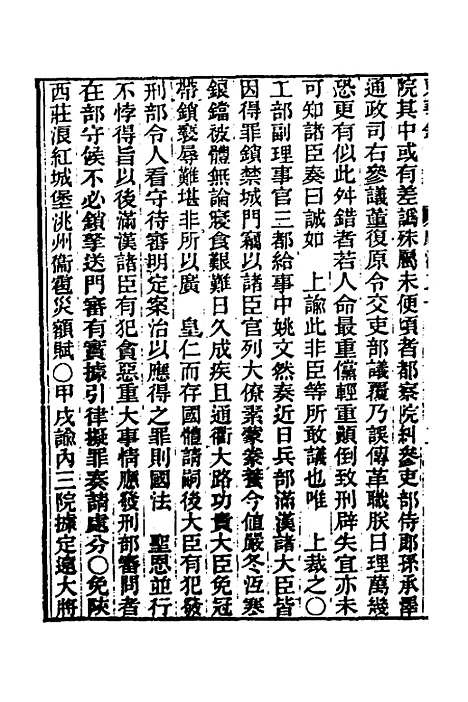 院其中或有差譌殊屬未便頃者都察院糾參吏部侍郎孫承澤
通政司右參議董復原令交吏部議覆乃誤傳革職朕日理萬幾
恐更有似此舛錯者若人命最重儻輕重顛倒致刑辟失宜亦未
可知諸臣奏曰誠如　上諭此非臣等所敢議也唯　上裁之〇
工部副理事官三都給事中姚文然奏近日兵部滿漢諸大臣皆
因得罪鎖禁城門竊以諸臣官列大僚素蒙豢養今値嚴冬沍寒
鋃鐺被體無論寢食艱難日久成疾且通衢大路功貴大臣免冠
帶鎖褻辱難堪非所以廣　皇仁而存國體請嗣後大臣有犯發
刑部令人看守待審明定案治以應得之罪則國法　聖恩並行
不悖得旨以後滿漢諸臣有犯貪惡重大事情應發刑部審問者
在部守候不必鎖拏送門審有實據引律擬罪奏請處分〇免陝
西莊浪紅城堡洮州衞雹災額賦〇甲戌諭內三院據定遠大將